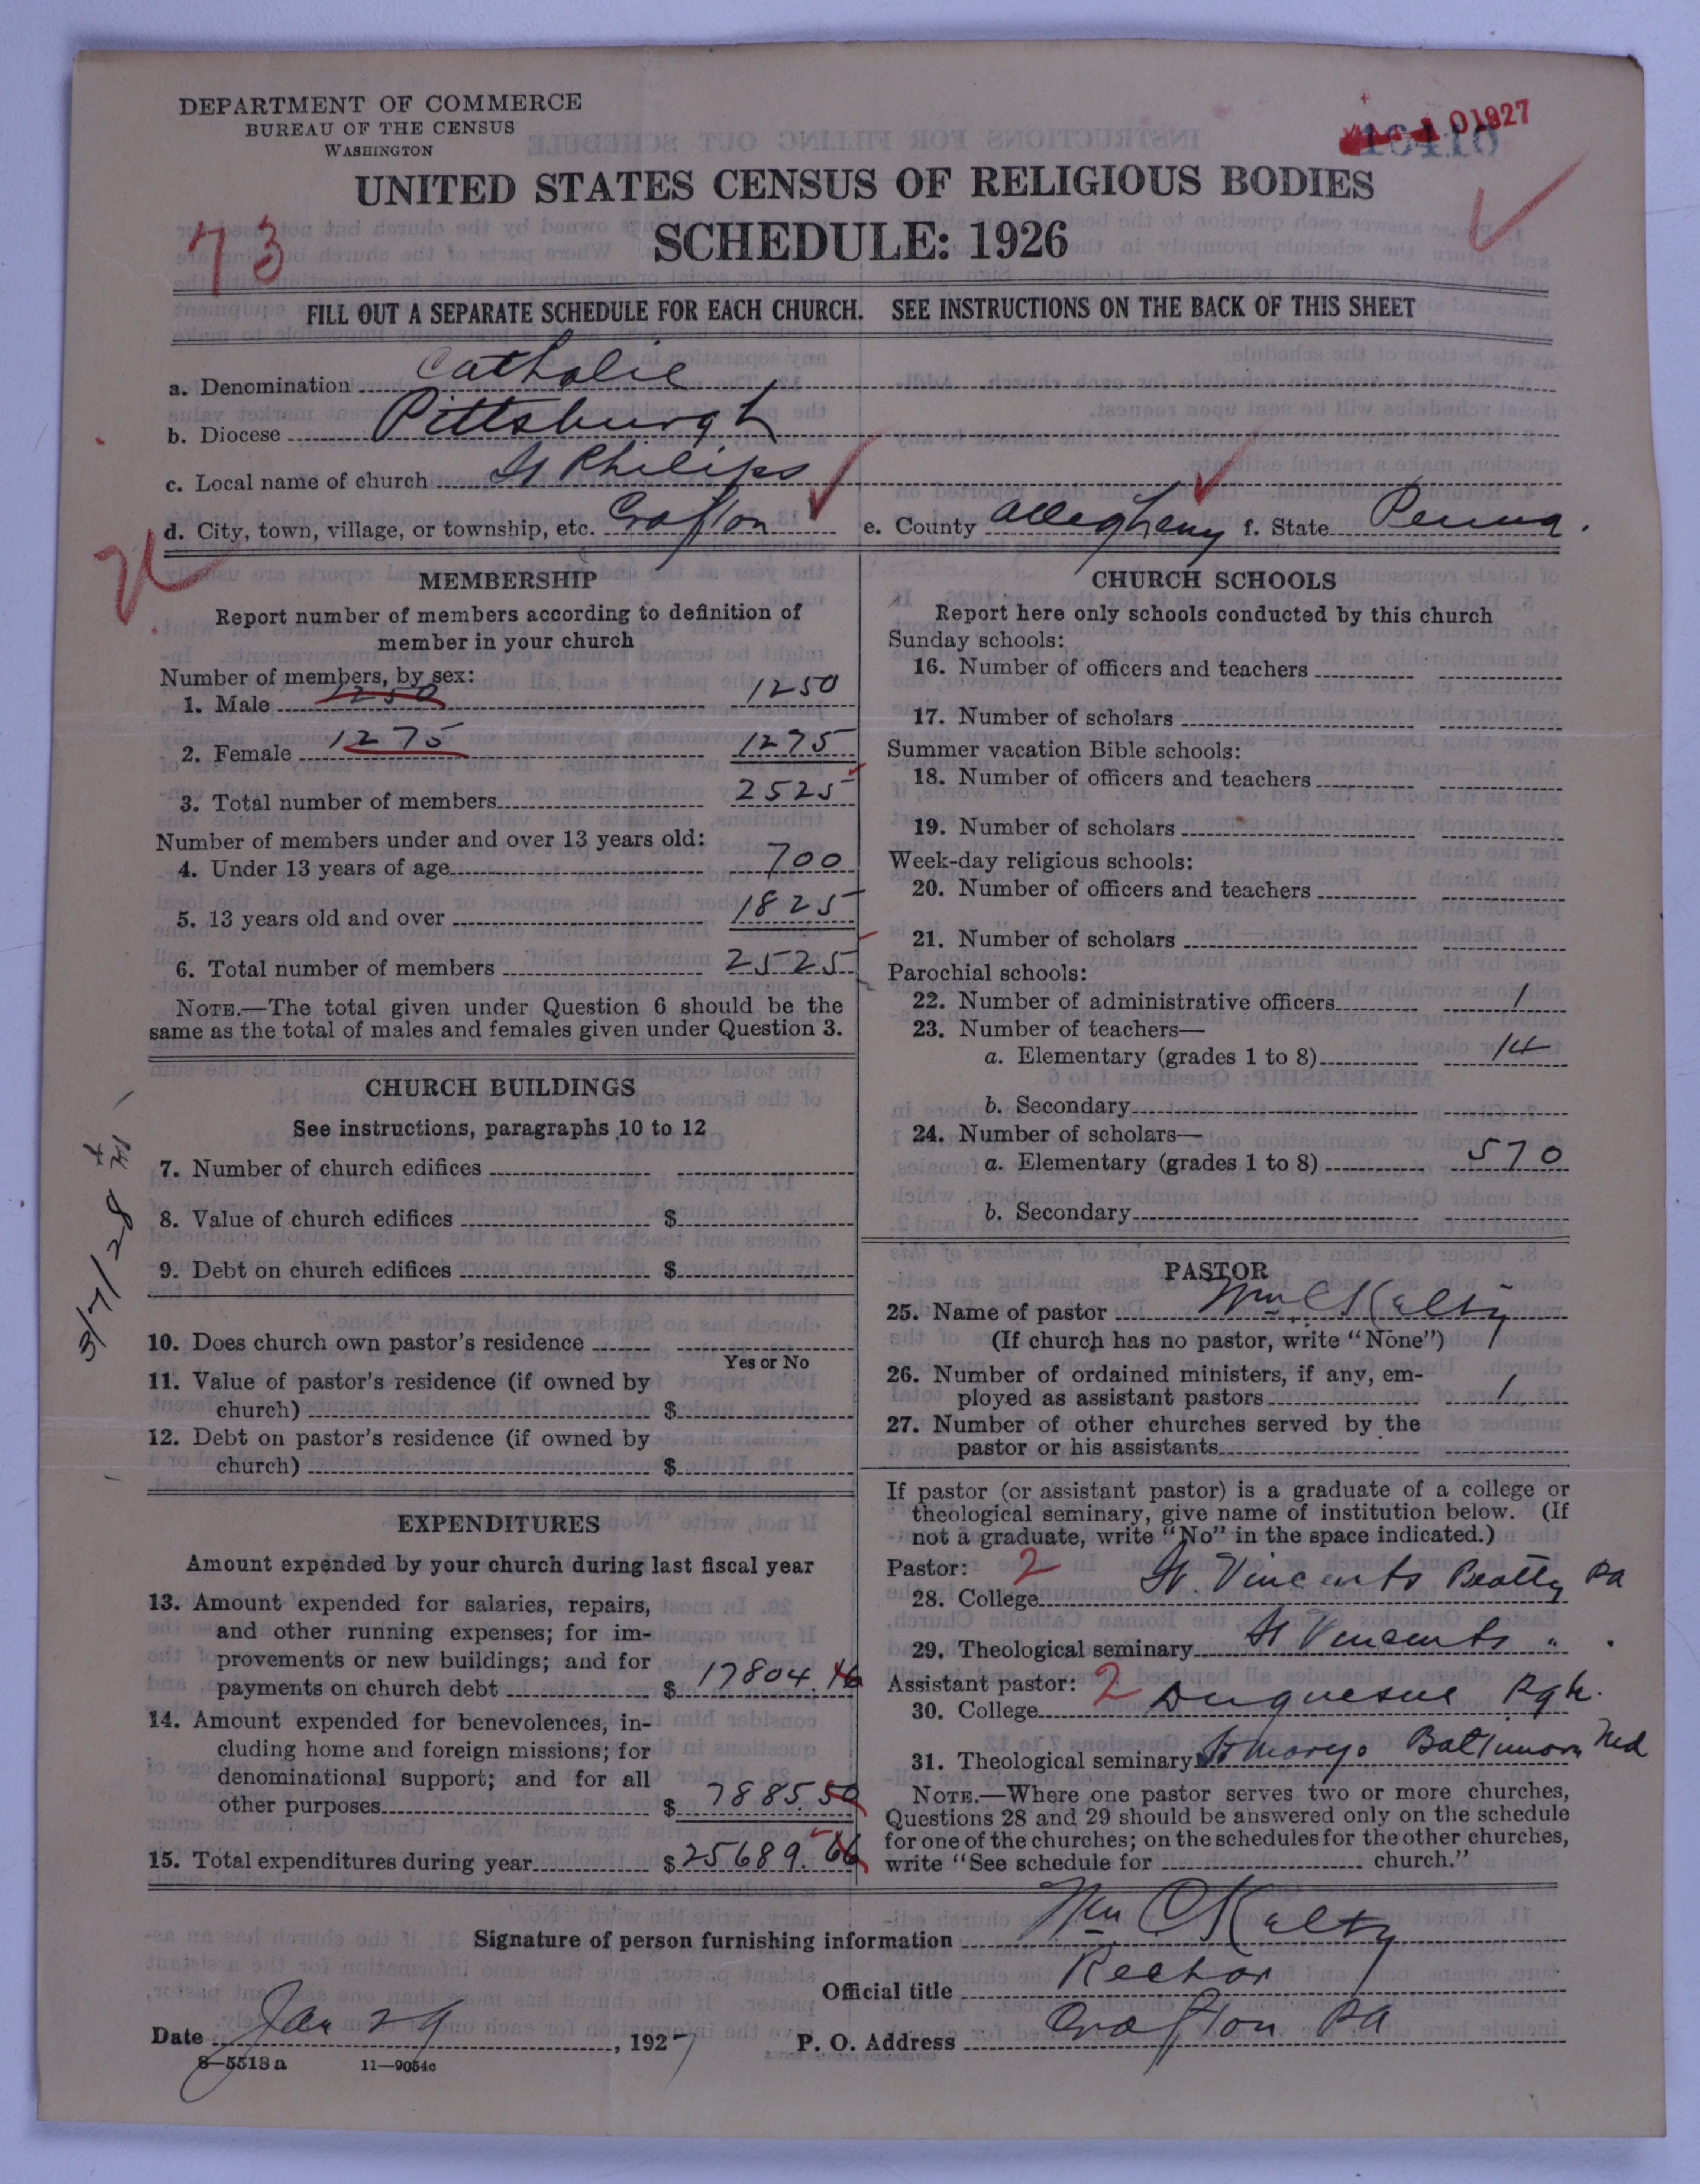 DEPARTMENT OF COMMERCE
BUREAU OF THE CENSUS
WASHINGTON
1927
16410
UNITED STATES CENSUS OF RELIGIOUS BODIES
73
SCHEDULE: 1926
FILL OUT A SEPARATE SCHEDULE FOR EACH CHURCH. SEE INSTRUCTIONS ON THE BACK OF THIS SHEET
a. Denomination Catholic
b. Diocese Pittsburgh
c. Local name of church St Philips
d. City, town, village, or township, etc. Crafton e. County Allegheny f. State Penna.
MEMBERSHIP
Report number of members according to definition of
member in your church
Number of members, by sex:
1. Male 1250 1250
2. Female 1275 1275
3. Total number of members 2525
Number of members under and over 13 years old:
4. Under 13 years of age 700
5. 13 years old and over 1825
6. Total number of members 2525
NOTE.—The total given under Question 6 should be the
same as the total of males and females given under Question 3.
CHURCH BUILDINGS
See instructions, paragraphs 10 to 12
7. Number of church edifices
8. Value of church edifices $
9. Debt on church edifices $
3/7/28
10. Does church own pastor's residence
Yes or No
11. Value of pastor's residence (if owned by
church) $
12. Debt on pastor's residence (if owned by
church) $
EXPENDITURES
Amount expended by your church during last fiscal year
13. Amount expended for salaries, repairs,
and other running expenses; for im-
provements or new buildings; and for
payments on church debt $ 17804.16
14. Amount expended for benevolences, in-
cluding home and foreign missions; for
denominational support; and for all
other purposes $ 7885.50
15. Total expenditures during year $ 25689.66
CHURCH SCHOOLS
Report here only schools conducted by this church
Sunday schools:
16. Number of officers and teachers
17. Number of scholars
Summer vacation Bible schools:
18. Number of officers and teachers
19. Number of scholars
Week-day religious schools:
20. Number of officers and teachers
21. Number of scholars
Parochial schools:
22. Number of administrative officers 1
23. Number of teachers—
a. Elementary (grades 1 to 8) 14
b. Secondary
24. Number of scholars—
a. Elementary (grades 1 to 8) 570
b. Secondary
PASTOR
25. Name of pastor Wm C Kelty
(If church has no pastor, write "None")
26. Number of ordained ministers, if any, em-
ployed as assistant pastors 1
27. Number of other churches served by the
pastor or his assistants
If pastor (or assistant pastor) is a graduate of a college or
theological seminary, give name of institution below. (If
not a graduate, write "No" in the space indicated.)
Pastor: 2
28. College St. Vincents Beatty Pa
29. Theological seminary St Vincents " .
Assistant pastor: 2
30. College Duquesne Pgh.
31. Theological seminary St Marys Baltimore Md
NOTE.—Where one pastor serves two or more churches,
Questions 28 and 29 should be answered only on the schedule
for one of the churches; on the schedules for the other churches,
write "See schedule for church."
Signature of person furnishing information Wm C Kelty
Official title Rector
Date Jan 29, 1927 P. O. Address Crafton Pa
8—5518a 11—9054c